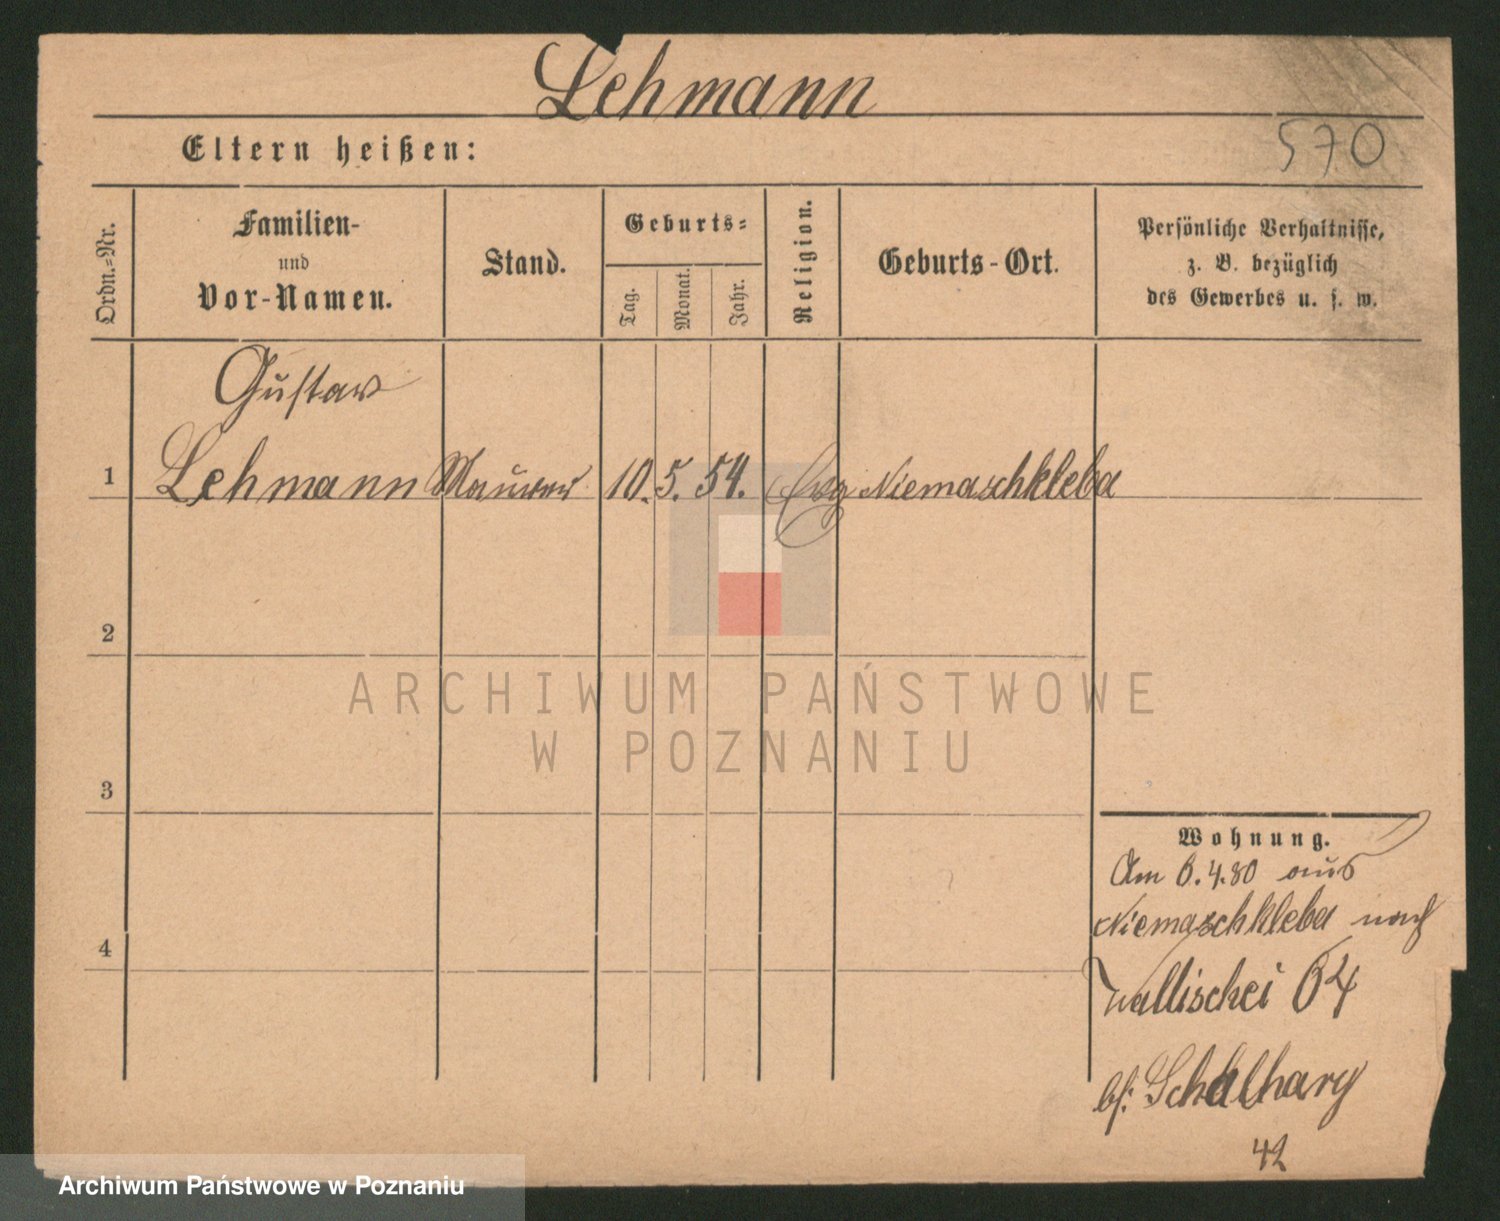 Lehmann
570
Eltern heißen:
Ordn.-Nr.
Familien-
und
Vor-Namen.
Stand.
Geburts-
Tag.
Monat.
Jahr.
Religion.
Geburts-Ort.
Persönliche Verhältnisse,
z. B. bezüglich
des Gewerbes u. s. w.
Gustav
1 Lehmann Maurer 10. 5. 54. Evg Niemaschkleba
2
3
4
Wohnung.
Am 6.4.80 aus
Niemaschkleba nach
Wallischei 64
bei
42
ARCHIWUM PAŃSTWOWE
W POZNANIU
Archiwum Państwowe w Poznaniu